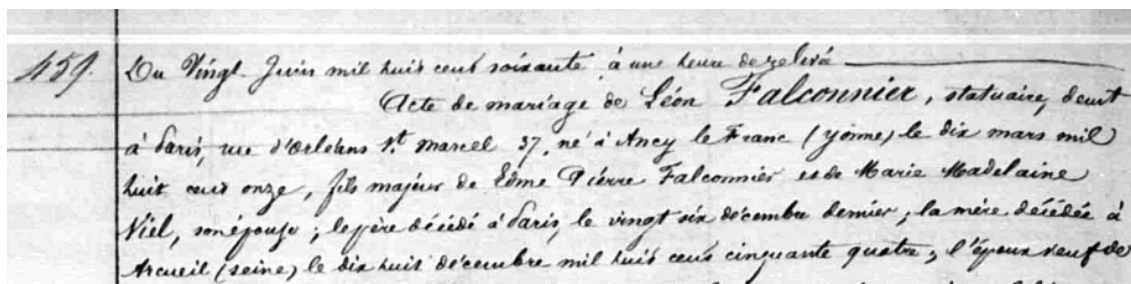 459. Du Vingt Juin mil huit cent soixante à une heure de relevée
Acte de mariage de Léon Falconnier, statuaire, demt
à Paris, rue d'Orléans St. Marcel 37, né à Ancy le Franc (yonne) le dix mars mil
huit cent onze, fils majeur de Edme Pierre Falconnier et de Marie Madelaine
Viel, son épouse ; le père décédé à Paris, le vingt six décembre dernier ; la mère décédée à
Arcueil (seine) le dix huit décembre mil huit cent cinquante quatre ; l'époux veuf de